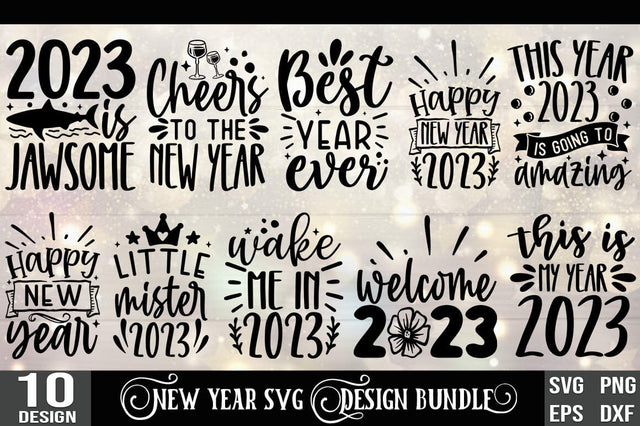 2023
is
JAWSOME
Cheers
TO THE
NEW YEAR
Best
YEAR
ever
Happy
NEW YEAR
2023
THIS YEAR
2023
IS GOING TO
amazing
Happy
NEW
year
LITTLE
mister
2023
wake
ME IN
2023
welcome
2023
this is
MY YEAR
2023
10
DESIGN
NEW YEAR SVG DESIGN BUNDLE
SVG PNG
EPS DXF